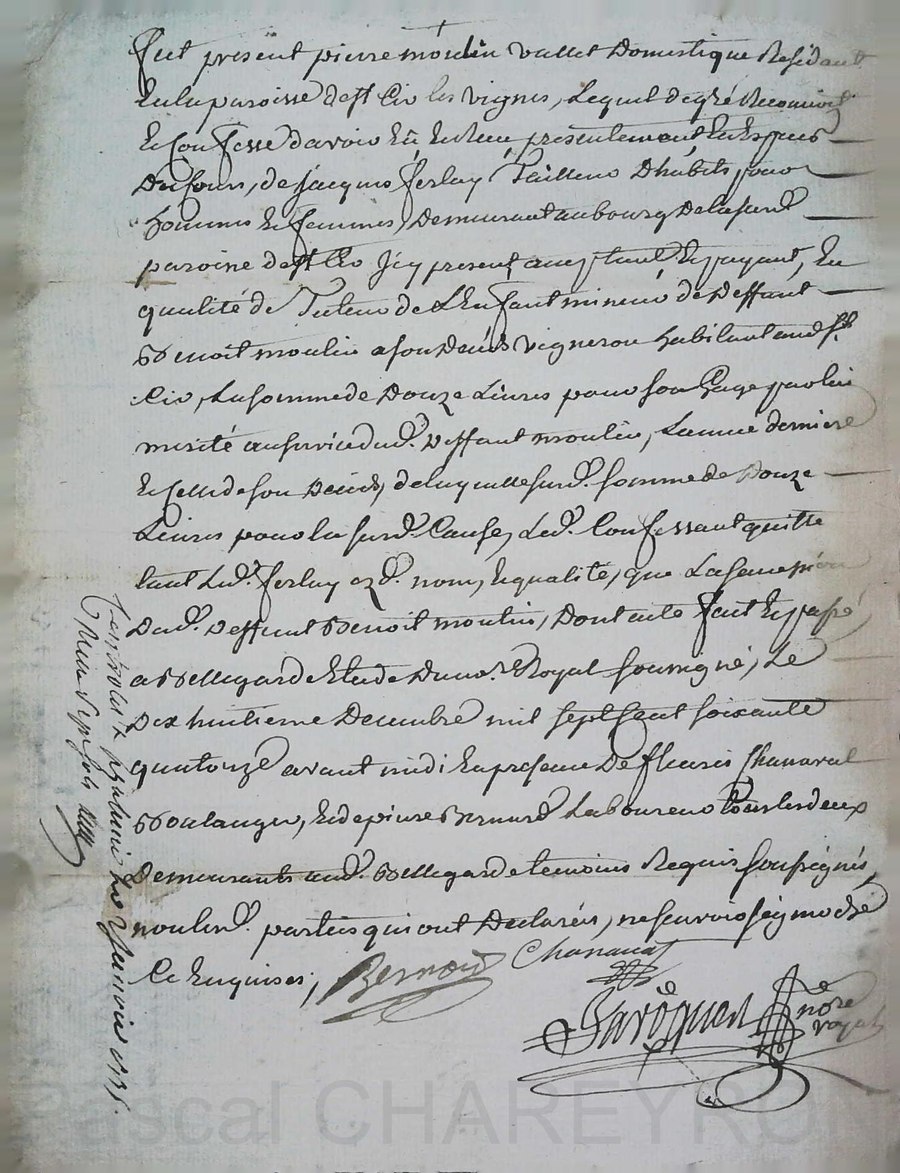 fut present pierre moulin vallet Domestique Residant
En la paroisse de st Cir les vignes, Lequel de gré Reconnoit
Et Confesse davoir Eû Et Receu, presentement En Especes
Du Cours, de jacques ferlay Tailleur D'habits pour
hommes Et femmes, Demeurant au bourg De la sus.d
paroisse de st Cir Jcy present acceptant, Et payant, En
qualité de Tuteur de L'Enfant mineur de Deffunt
Benoit moulin a son Decés vigneron habitant aud. st
Cir, La somme de Douze Livres pour son Gage par lui
merité au service dud. Deffunt moulin, L'année derniere
Et Celle de son Decés, de laquelle susd. somme de Douze
Livres pour la susd. Cause, Led. Confessant quitte
tant Led. ferlay ezd. nom, Et qualité, que La succession
Dud. Deffunt Benoit moulin, Dont acte fait Et passé
a Bellegarde Etude Du no.re Royal soussigné, Le
Dix huitieme Decembre mil sept Cent soixante
quatorze avant midi En presence De fleuris Chanavat
Boulanger, Et de pierre Bernard Laboureur tous les deux
Demeurants aud. Bellegarde temoins Requis soussignés,
non lesd. parties qui ont Declarées, ne scavoir signer de
Ce Enquises;
Bernard
Chanavat
no.re
royal
le Janvier 1775.